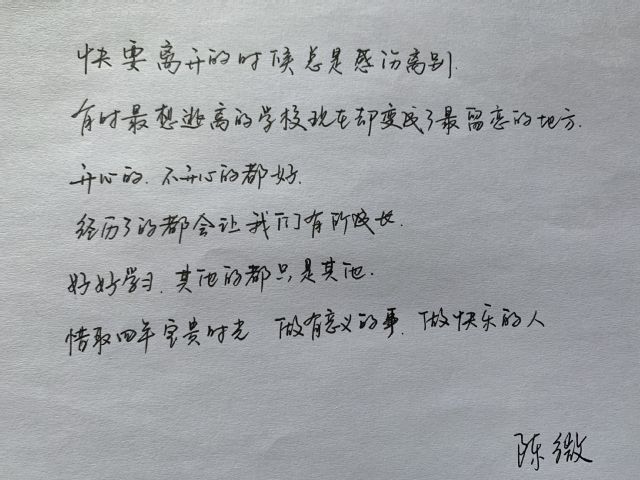 快要离开的时候总是感伤离别.
有时最想逃离的学校现在却变成了最留恋的地方.
开心的.不开心的都好.
经历了的都会让我们有所成长.
好好学习.其他的都只是其他.
惜取四年宝贵时光 做有意义的事.做快乐的人
陈微